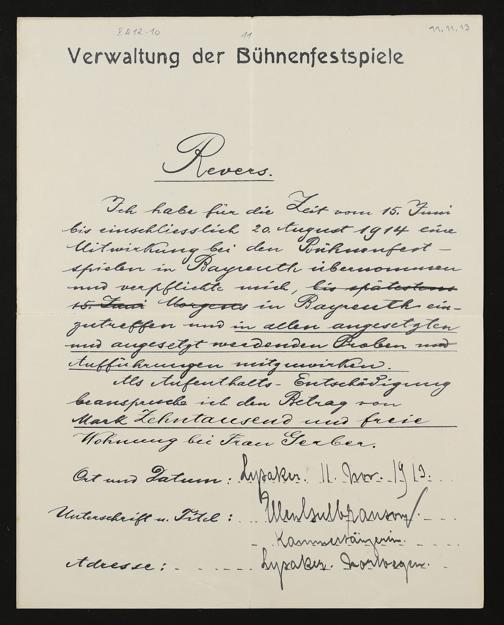 11
11.11.13
Verwaltung der Bühnenfestspiele
Revers.
Ich habe für die Zeit vom 15. Juni
bis einschliesslich 20. August 1914 eine
Mitwirkung bei den Bühnenfest-
spielen in Bayreuth übernommen
und verpflichte mich, bis spätestens
15. Juni Morgens in Bayreuth ein-
zutreffen und in allen angesetzten
und angesetzt werdenden Proben und
Aufführungen mitzuwirken.
Als Aufenthalts-Entschädigung
beanspruche ich den Betrag von
Mark Zehntausend und freie
Wohnung bei Frau Gerber.
Ort und Datum: Lysaker. 11. Nov. 1913.
Unterschrift u. Titel: Ellen Gulbranson
Kammersängerin.
Adresse: Lysaker. Norwegen.